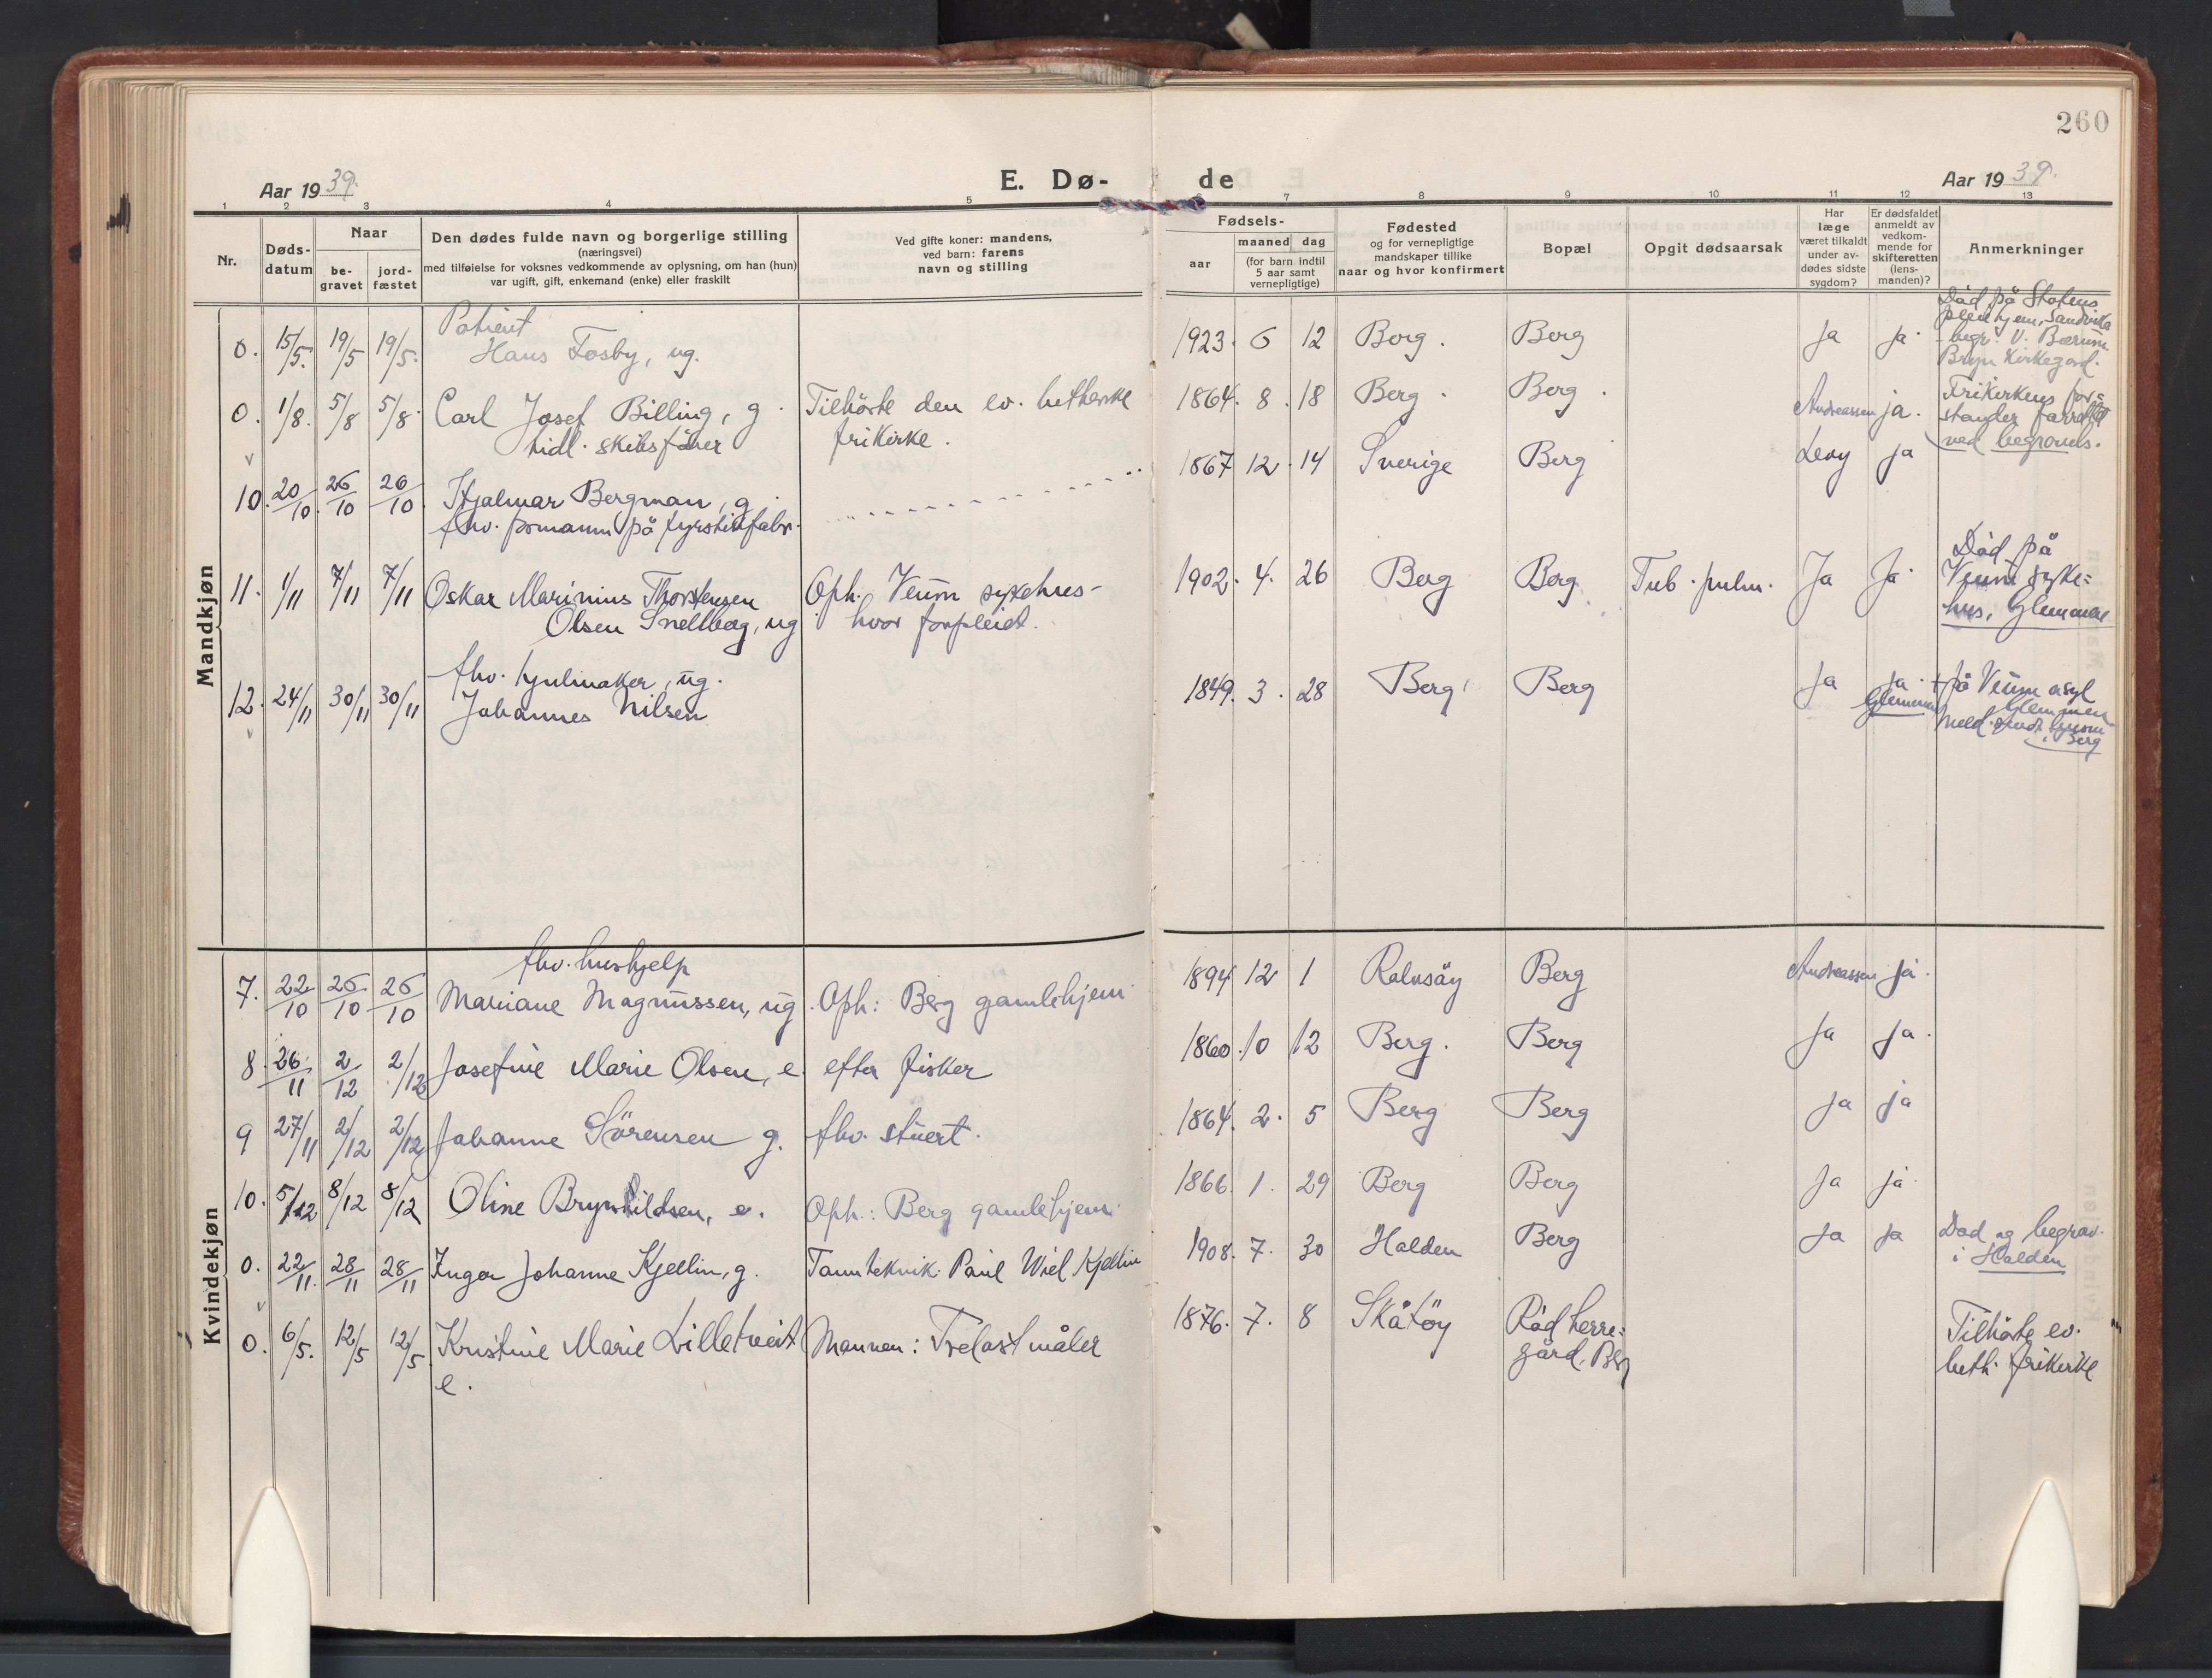 260
Aar 1939.
E. Dø-
de
Aar 1939.
1 2 3 4 5 6 7 8 9 10 11 12 13
Nr.
Døds-
datum
Naar
be-
gravet
jord-
fæstet
Den dødes fulde navn og borgerlige stilling
(næringsvei)
med tilføielse for voksnes vedkommende av oplysning, om han (hun)
var ugift, gift, enkemand (enke) eller fraskilt
Ved gifte koner: mandens,
ved barn: farens
navn og stilling
Fødsels-
aar
maaned dag
(for barn indtil
5 aar samt
vernepligtige)
Fødested
og for vernepligtige
mandskaper tillike
naar og hvor konfirmert
Bopæl
Opgit dødsaarsak
Har
læge
været tilkaldt
under av-
dødes sidste
sygdom?
Er dødsfaldet
anmeldt av
vedkom-
mende for
skifteretten
(lens-
manden)?
Anmerkninger
Mandkjøn
Patient
0. 15/5. 19/5 19/5. Hans Fosby, ug. 1923. 6 12 Borg. Borg Ja ja.
Død på Statens
pleiehjem, Sandvika
begr. V. Bærum
Bryn Kirkegård.
0. 1/8. 5/8 5/8. Carl Josef Billing, g. Tilhörte den ev. lutherske 1864. 8. 18 Berg. Berg. Andreassen ja.
tidl. skibsfører frikirke.
Frikirkens for-
stander forrettet
ved begravels.
10. 20/10. 26/10 26/10. Hjalmar Bergman, g. 1867 12. 14 Sverige Berg Levy ja
fhv. formann på fyrstikkfabr.
11. 1/11 7/11 7/11 Oskar Marinius Thorstensen Oph. Veum sykehus- 1902. 4. 26 Berg Berg. Tub. pulm. Ja Ja.
Olsen Snelleberg, ug hvor forpleiet.
Død på
Veum syke=
hus, Glemmen
fhv. hjulmaker, ug.
12. 24/11 30/11 30/11 Johannes Nilsen 1849. 3. 28 Berg Berg Ja ja.
Glemmen
+ på Veum asyl
Glemmen
Meld. sendt lensm.
i Berg
Kvindekjøn
fhv. hushjelp
7. 22/10 26/10 26/10 Mariane Magnussen, ug. Oph: Berg gamlehjem 1894 12 1 Rolvsöy Berg Andreassen ja.
8. 26/11 2/12 2/12 Josefine Marie Olsen, e. efter fisker 1860. 10 12 Berg. Berg Ja ja.
9 27/11 2/12 2/12 Johanne Sörensen g. fhv. stuert. 1864. 2. 5 Berg Berg Ja ja
10. 5/12 8/12 8/12 Oline Brynhildsen, e. Oph.: Berg gamlehjem. 1866. 1. 29 Berg Berg Ja ja.
0. 22/11. 28/11 28/11 Inger Johanne Kjellin, g. Tannteknik. Paul Wiel Kjellin 1908. 7. 30 Halden Berg Ja ja Død og begrav.
i Halden
0. 6/5. 12/5 12/5 Kristine Marie Lilletveit Mannen: Trelastmåler 1876. 7. 8 Skåtöy Röd herre=
e. gård, Berg
Tilhörte ev.
luth. frikirke